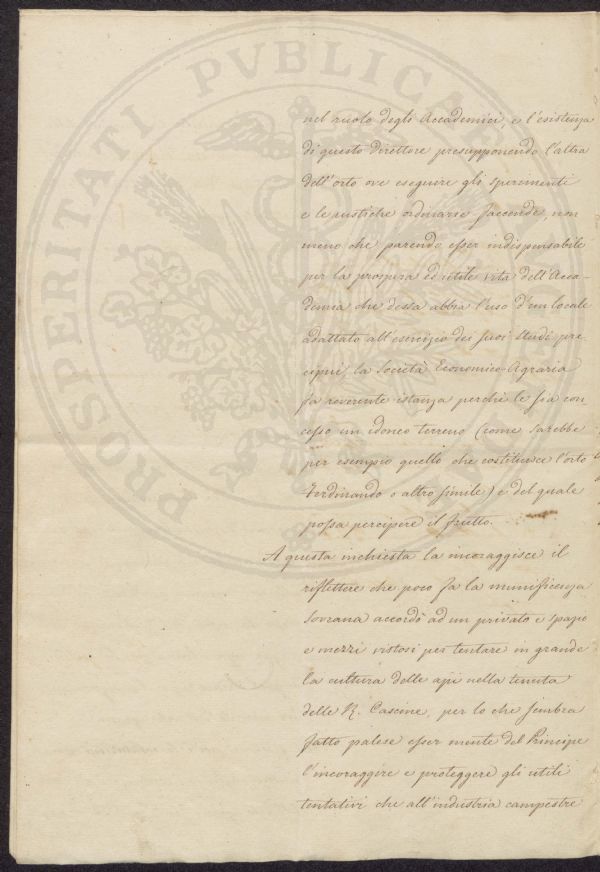 PROSPERITATI PVBLICAE AV
nel ruolo degli Accademici, e l'esistenza
di questo Direttore presupponendo l'altra
dell'orto ove eseguire gli sperimenti
e le rustiche ordinarie faccende, non
meno che parendo esser indispensabile
per la prospera ed utile vita dell'Acca-
demia che dessa abbia l'uso d'un locale
adattato all'esercizio dei suoi studi pre
cipui, la Società Economico-Agraria
fa reverente istanza perchè le sia con
cesso un idoneo terreno (come sarebbe
per esempio quello che costituisce l'orto
Ferdinando o altro simile) e del quale
possa percipere il frutto.
A questa inchiesta la incoraggisce il
riflettere che poco fa la munificenza
Sovrana accordò ad un privato e spazio
e mezzi vistosi per tentare in grande
la cultura delle api nella tenuta
delle R. Cascine, per lo che sembra
fatto palese esser mente del Principe
l'incoraggire e proteggere gli utili
tentativi che all'industria campestre